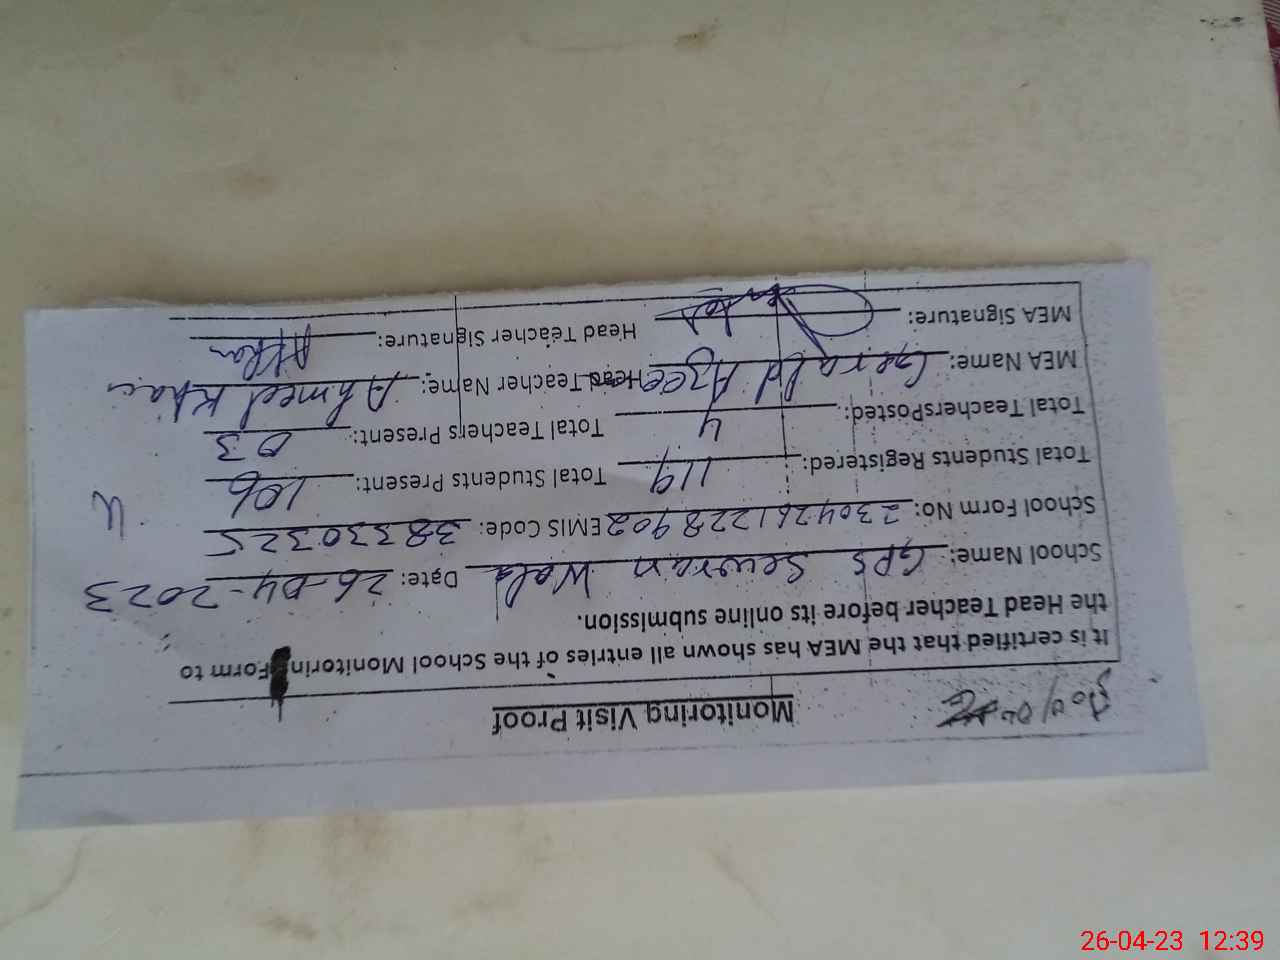 Monitoring Visit Proof
It is certified that the MEA has shown all entries of the School Monitorin Form to
the Head Teacher before its online submission.
School Name: GPS Sewran Wala Date: 26-04-2023
School Form No: 2304261228902 EMIS Code: 38330325
Total Students Registered: 119 Total Students Present: 106
Total TeachersPosted: 4 Total Teachers Present: 03
MEA Name: Gerald Azeem Head Teacher Name: Ahmed Khan
MEA Signature: Head Teacher Signature: AKhan
26-04-23 12:39